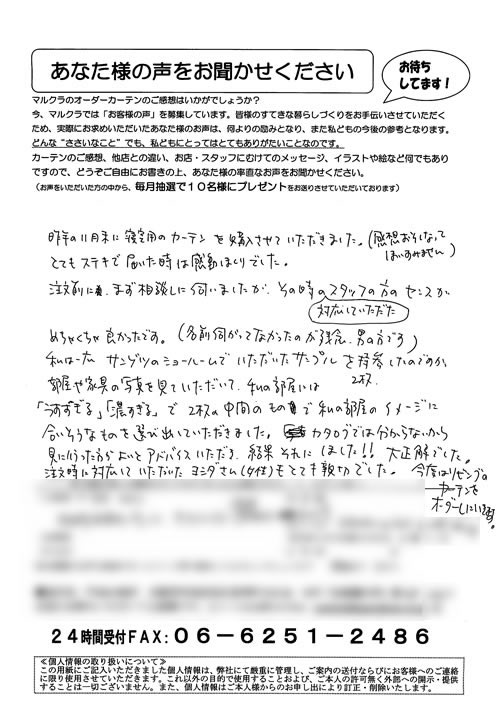 あなた様の声をお聞かせください
お待ち
してます！
マルクラのオーダーカーテンのご感想はいかがでしょうか？
今、マルクラでは「お客様の声」を募集しています。皆様のすてきな暮らしづくりをお手伝いさせていただく
ため、実際にお求めいただいたあなた様のお声は、何よりの励みとなり、また私どもの今後の参考となります。
どんな“ささいなこと”でも、私どもにとってはとてもありがたいことなのです。
カーテンのご感想、他店との違い、お店・スタッフにむけてのメッセージ、イラストや絵など何でもあり
ですので、どうぞご自由にお書きの上、あなた様の率直なお声をお聞かせください。
（お声をいただいた方の中から、毎月抽選で１０名様にプレゼントをお送りさせていただいております）
昨年の11月末に寝室用のカーテンを購入させていただきました。（感想おそくなって
ほいすみません）
とてもステキで届いた時は感動ものでした。
注文前に、まず相談しに伺いましたが、その時のスタッフの方のセンスが
対応していただいた
めちゃくちゃ良かったです。（名前伺がってなかったのが残念、男の方です）
私は一応サンゲツのショールームでいただいたサンプルを持参したのですが、
2枚
部屋や家具の写真を見ていただいて、私の部屋には
「淡すぎる」「濃すぎる」で2枚の中間のもので私の部屋のイメージに
合いそうなものを選び出していただきました。カタログでは分からないから
見に行った方がよいとアドバイスいただき、結果それにしました!! 大正解でした。
注文時に対応していただいたヨシダさん（女性）もとても親切でした。
今度はリビングの
カーテンを
オーダーしにいきます。
２４時間受付FAX：０６－６２５１－２４８６
≪個人情報の取り扱いについて≫
この用紙にご記入いただきました個人情報は、弊社にて厳重に管理し、ご案内の送付ならびにお客様へのご連絡
に限り使用させていただきます。これ以外の目的で使用することおよび、ご本人の許可無く外部への開示・提供
することは一切ございません。また、個人情報はご本人様からのお申し出により訂正・削除いたします。